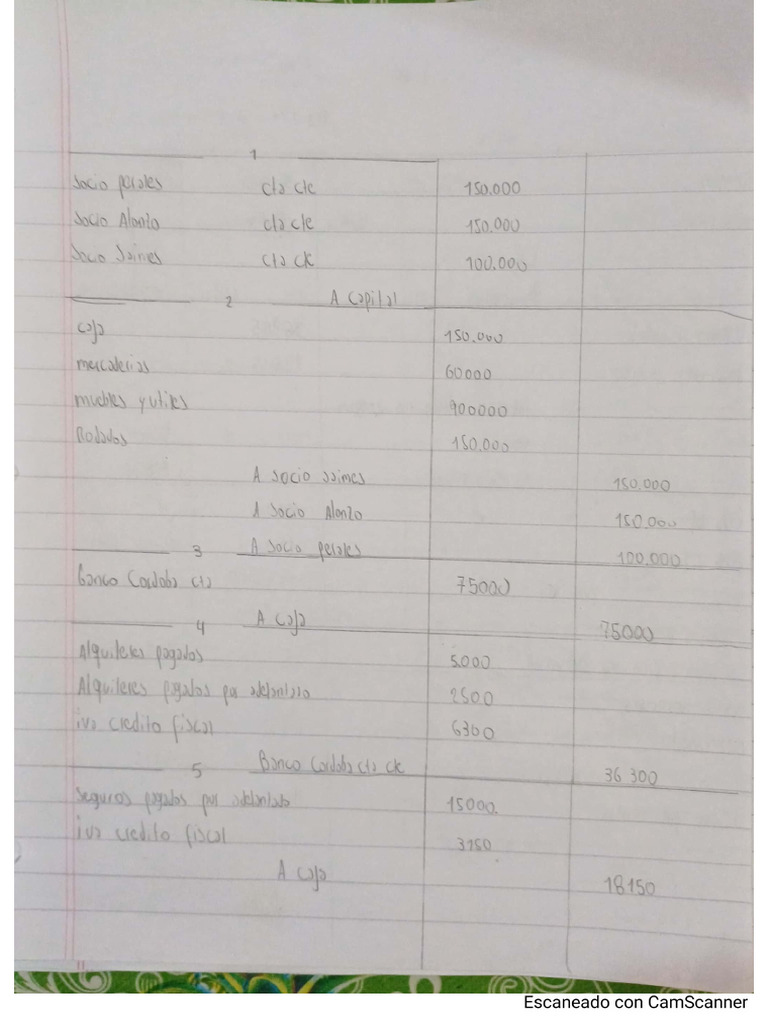 1
Socio perales cta cte 150.000
Socio Alonzo cta cte 150.000
Socio Jaimes cta ck 100.000
2 A Capital
caja 150.000
mercaderias 60000
muebles y utiles 900000
Rodados 150.000
A Socio Jaimes 150.000
A Socio Alonzo 150.000
3 A Socio perales 100.000
Banco Cordoba cta 75000
4 A Caja 75000
Alquileres pagados 5.000
Alquileres pagados por adelantado 2500
iva credito fiscal 6300
5 Banco Cordoba cta ck 36 300
Seguros pagados por adelantado 15000.
iva credito fiscal 3150
A caja 18150
Escaneado con CamScanner